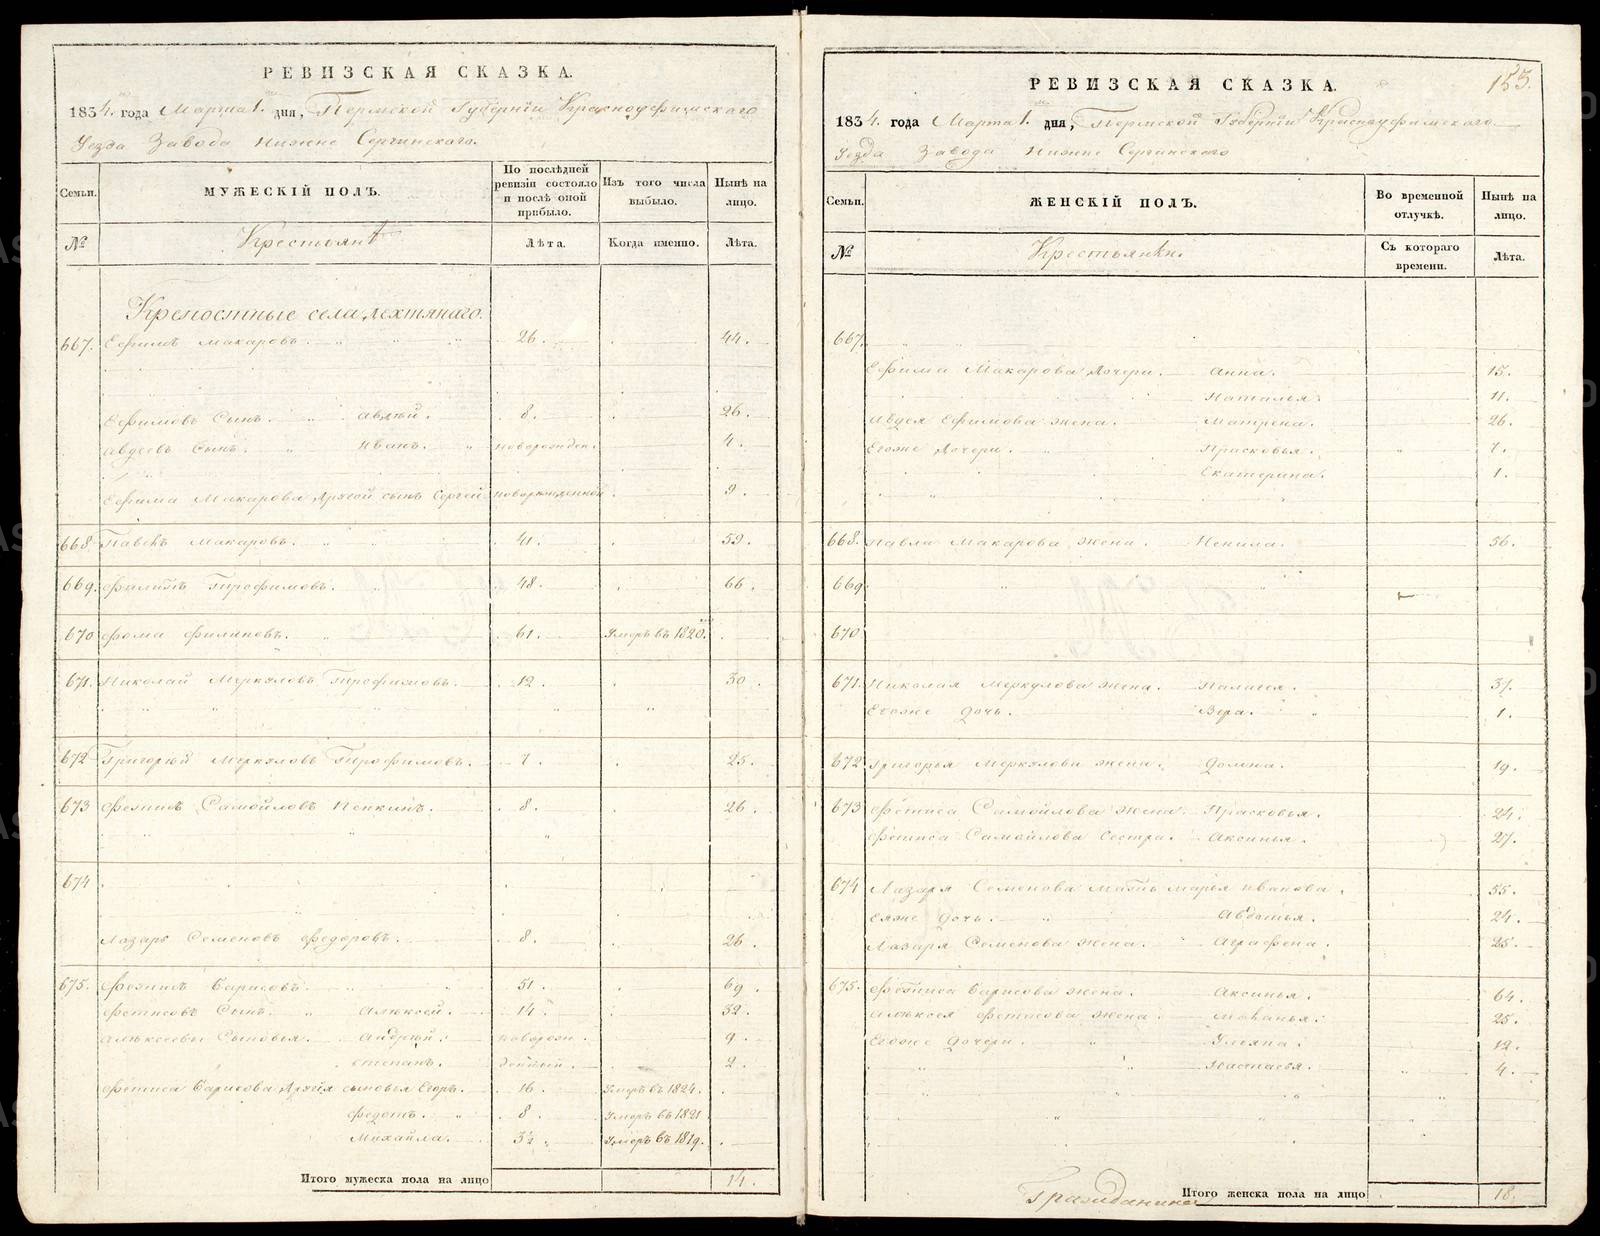 РЕВИЗСКАЯ СКАЗКА.
1834. года Марта 1. дня, Пермской Губерніи Красноуфимскаго
Уезда Завода Нижне Сергинскаго.
Семьи.
МУЖЕСКІЙ ПОЛЪ.
По последней ревизіи состояло и послѣ оной прибыло.
Изъ того числа выбыло.
Нынѣ на лицо.
№
Крестьянѣ
Лѣта.
Когда именно.
Лѣта.
Крепостные села
667. Ефимъ Макаровъ. 26. 44.
Ефимовъ Сынъ. Авдѣй. 8. 26.
Авдеевъ Сынъ. Иванъ. новорожден. 4.
Ефима Макарова другой сынъ Сергей новорожденной 9.
668. Павелъ Макаровъ. 41. 59.
669. Филипъ Трофимовъ. 48. 66.
670 Фома Филиповъ. 61. Умеръ въ 1820.
671. Николай Меркуловъ Трофимовъ. 12. 30.
672 Григорий Меркуловъ Трофимовъ. 7. 25.
673 Фетисъ Самойловъ Пенкинъ. 8. 26.
674
Лазарь Семеновъ Федоровъ. 8. 26.
675. Фетисъ Барисовъ. 51. 69.
Фетисовъ Сынъ. Алексей. 14. 32.
Алексеевы Сыновья. Андрей. новорож. 9.
Степанъ. денный. 2.
Фетиса Барисова другия сыновья Егоръ. 16. Умеръ въ 1824.
Федотъ. 8. Умеръ въ 1821
Михайла. 3½ Умеръ въ 1819.
Итого мужеска пола на лицо 14.
153.
РЕВИЗСКАЯ СКАЗКА.
1834. года Марта 1. дня, Пермской Губерніи Красноуфимскаго
Уезда Завода Нижне Сергинскаго
Семьи.
ЖЕНСКІЙ ПОЛЪ.
Во временной отлучкѣ.
Нынѣ на лицо.
№
Крестьянки.
Съ котораго времени.
Лѣта.
667.
Ефима Макарова дочери. Анна. 15.
Наталья. 11.
Авдея Ефимова жена. Матрена. 26.
Егоже дочери. Прасковья. 7.
Екатерина. 1.
668. Павла Макарова жена. Ненила. 56.
669.
670
671. Николая Меркулова жена. Палагея. 37.
Егоже дочь. Вера. 1.
672 Григорья Меркулова жена. Домна. 19.
673 Фетиса Самойлова жена. Прасковья. 24.
Фетиса Самойлова Сестра. Аксинья. 27.
674 Лазаря Семенова мать Марья Иванова. 55.
Еяже дочь. Авдотья. 24.
Лазаря Семенова жена. Аграфена. 25.
675. Фетиса Барисова жена. Аксинья. 64.
Алексея Фетисова жена. Маланья. 25.
Егоже дочери. Ульяна. 12.
Настасья. 4.
Итого женска пола на лицо 18.